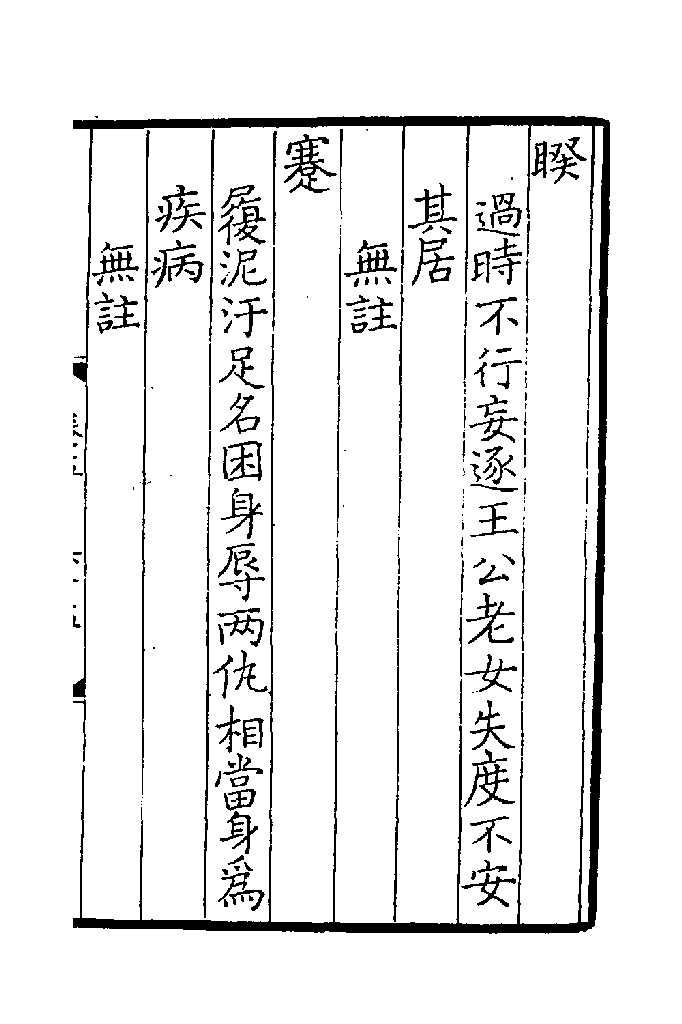 睽
過時不行妄逐王公老女失度不安
其居
無註
蹇
履泥汙足名困身辱两仇相當身爲
疾病
無註